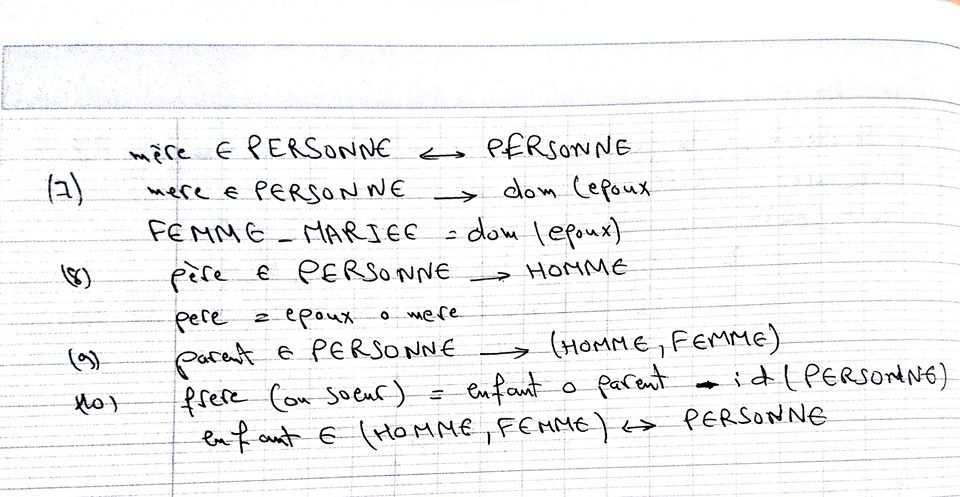 mère ∈ PERSONNE ↔ PERSONNE
(7) mere ∈ PERSONNE → dom (epoux
FEMME _ MARIEE = dom (epoux)
(8) père ∈ PERSONNE → HOMME
pere = epoux o mere
(9) parent ∈ PERSONNE → (HOMME, FEMME)
(10) frere (ou soeur) = enfant o parent - id (PERSONNE)
enfant ∈ (HOMME, FEMME) ↔ PERSONNE